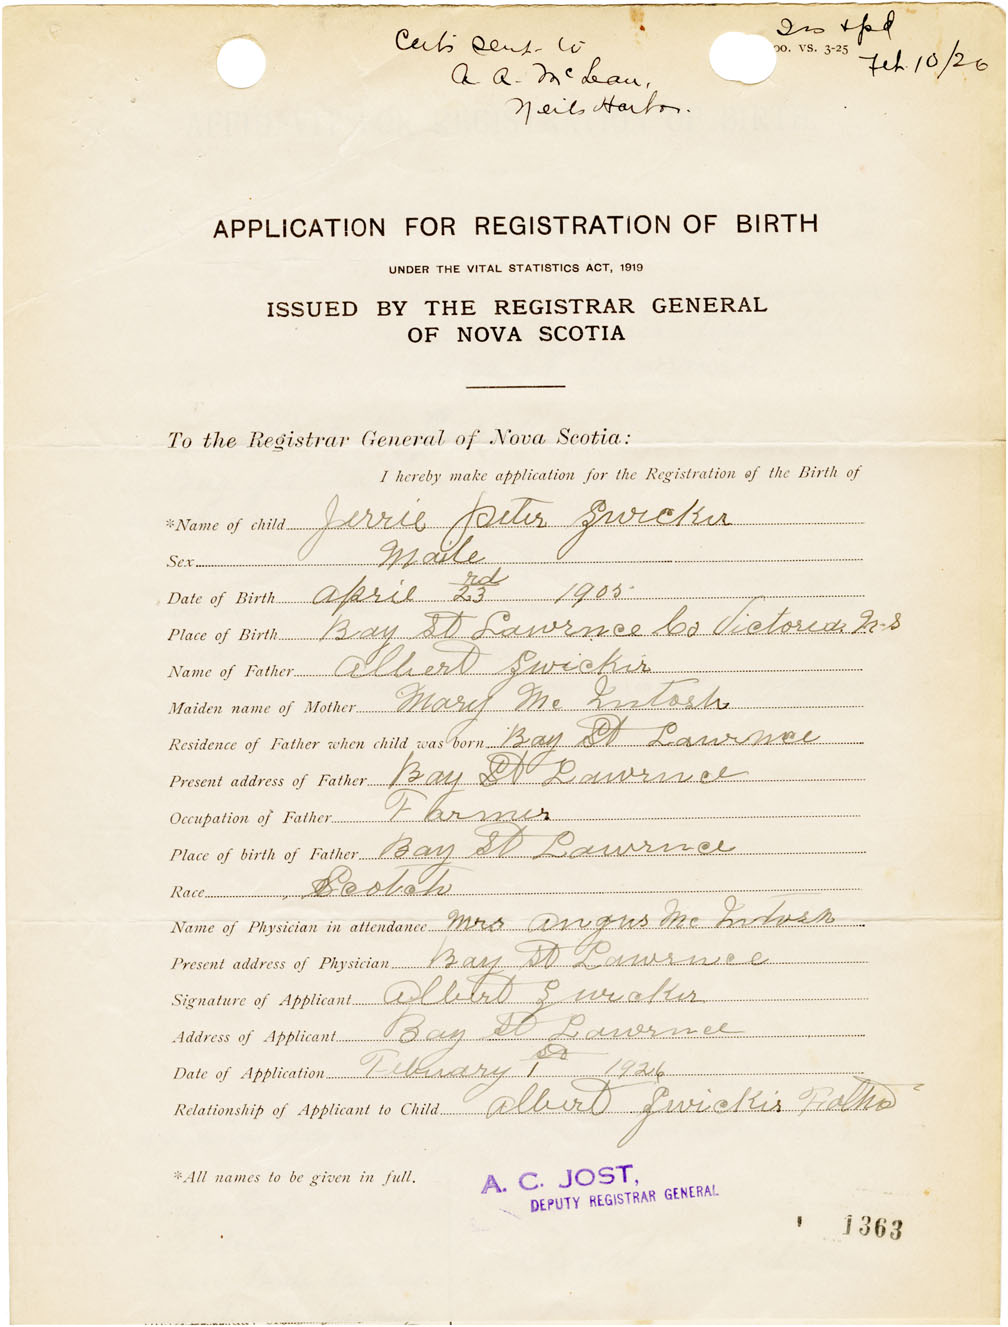 Certs sent to
A A. McLean,
Neils Harbor.
pd
00. VS. 3-25
Feb. 10/26
APPLICATION FOR REGISTRATION OF BIRTH
UNDER THE VITAL STATISTICS ACT, 1919
ISSUED BY THE REGISTRAR GENERAL
OF NOVA SCOTIA
To the Registrar General of Nova Scotia:
I hereby make application for the Registration of the Birth of
*Name of child Jerrie Peter Zwicker
Sex Maile
Date of Birth April 23rd 1905
Place of Birth Bay St Lawrnce Co Victoria N-S
Name of Father Albert Zwicker
Maiden name of Mother Mary Mc Intosh
Residence of Father when child was born Bay St Lawrnce
Present address of Father Bay St Lawrnce
Occupation of Father Farmer
Place of birth of Father Bay St Lawrnce
Race Scotch
Name of Physician in attendance Mrs Angus Mc Intosh
Present address of Physician Bay St Lawrnce
Signature of Applicant Albert Zwicker
Address of Applicant Bay St Lawrnce
Date of Application Febuary 1st 1926
Relationship of Applicant to Child Albert Zwicker Father
*All names to be given in full.
A. C. JOST,
DEPUTY REGISTRAR GENERAL
1363